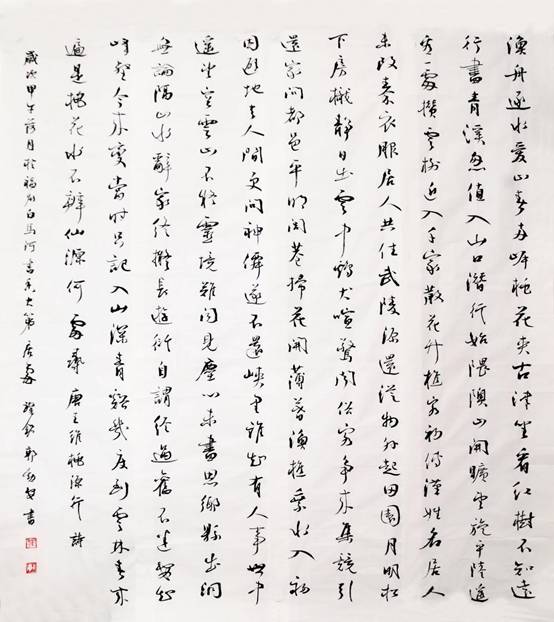 漁舟逐水愛山春兩岸桃花夾古津坐看紅樹不知遠
行盡青溪忽值人山口潛行始隈隩山開曠望旋平陸遙
看一處攢雲樹近入千家散花竹樵客初傳漢姓名居人
未改秦衣服居人共住武陵源還從物外起田園月明松
下房櫳靜日出雲中雞犬喧驚聞俗客爭來集競引
還家問都邑平明閭巷掃花開薄暮漁樵乘水入初
因避地去人間更問神僊遂不還峽里誰知有人事世中
遙望空雲山不疑靈境難聞見塵心未盡思鄉縣出洞
無論隔山水辭家終擬長遊衍自謂經過舊不迷安知
峰壑今來變當時只記入山深青谿幾度到雲林春來
遍是桃花水不辨仙源何處尋 唐王維桃源行詩
歲次甲午荷月於福州白馬河書香大第居處 郭 書